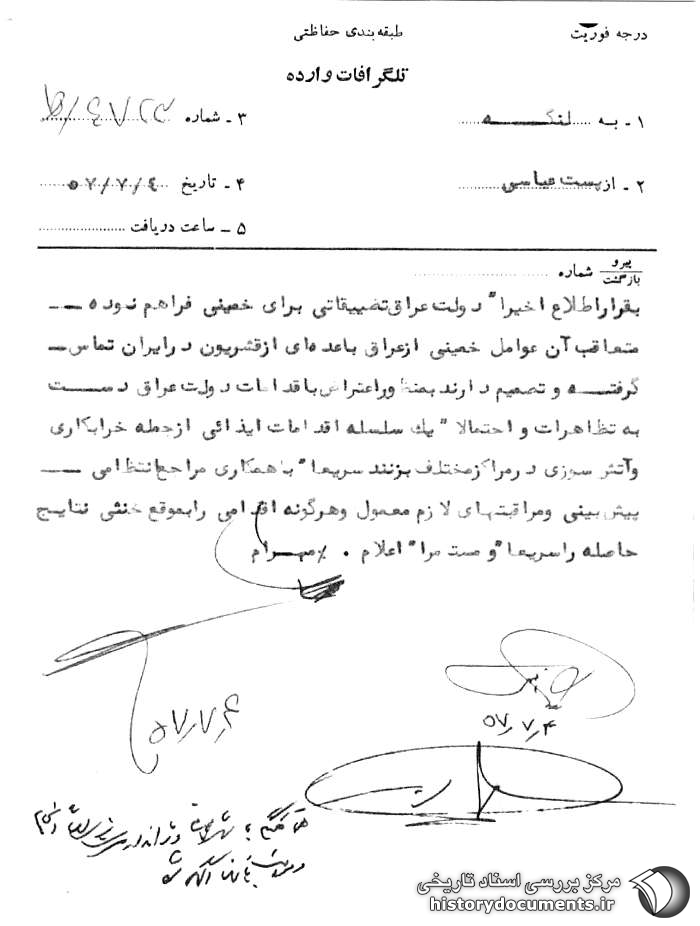 درجه فوریت
طبقه‌بندی حفاظتی
تلگرافات وارده
۱ - به لنگه
۳ - شماره
۲ - از پست عباسی
۴ - تاریخ ۵۷/۷/٤
۵ - ساعت دریافت
پیرو
بازگشت
شماره
بقرار اطلاع اخیرا" دولت عراق تضییقاتی برای خمینی فراهم نموده
متعاقب آن عوامل خمینی از عراق با عده ای از قشریون در ایران تماس
گرفته و تصمیم دارند بمنظور اعتراض باقدامات دولت عراق دست
به تظاهرات و احتمالا" یک سلسله اقدامات ایذائی از جمله خرابکاری
و آتش سوزی در مراکز مختلف بزنند سریعا" با همکاری مراجع انتظامی
پیش بینی ومراقبتهای لازم معمول وهرگونه اقدامی را بموقع خنثی نتایج
حاصله را سریعا" و مستمرا" اعلام . مهرام
۵۷٫۷٫۴
۵۷٫۷٫۴
مرکز بررسی اسناد تاریخی
historydocuments.ir